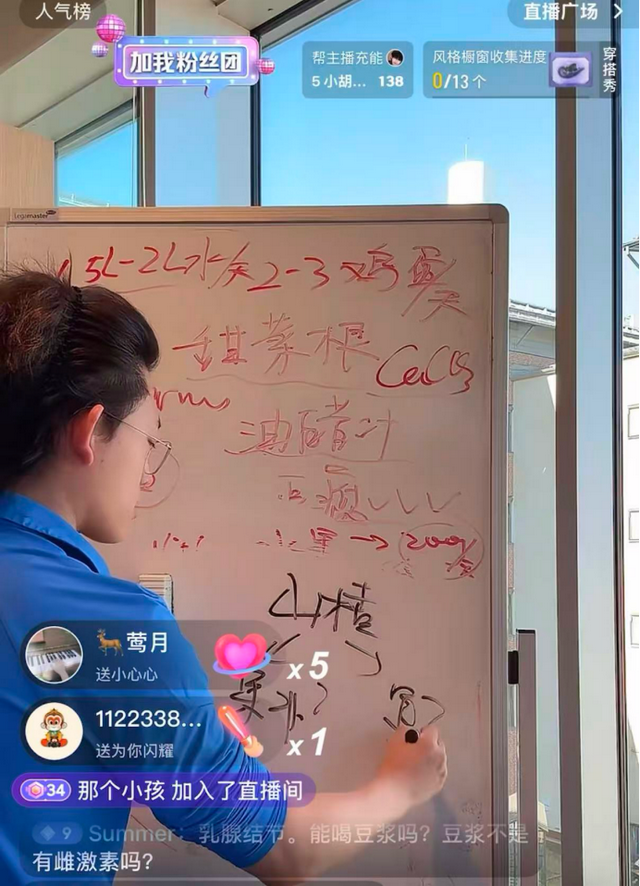 人气榜
直播广场 >
加我粉丝团
帮主播充能
5 小胡... 138
风格橱窗收集进度
0/13个
穿搭秀
Legamaster
5L-2L水/天 2-3鸡蛋/天
甜菜根
油醋汁
200g
山楂
莺月
送小心心
x5
1122338...
送为你闪耀
x1
34 那个小孩 加入了直播间
9 Summer：乳腺结节。能喝豆浆吗？豆浆不是
有雌激素吗？